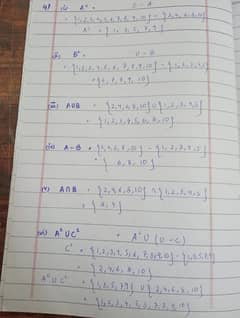 (i) A' = U - A
= {1,2,3,4,5,6,7,8,9,10} - {2,4,6,8,10}
A' = {1, 3, 5, 7, 9}
(ii) B' = U - B
= {1,2,3,4,5,6,7,8,9,10} - {1,2,3,4,5}
= {6, 7, 8, 9, 10}
(iii) A∪B = {2,4,6,8,10} ∪ {1,2,3,4,5}
= {1,2,3,4,5,6,8,10}
(iv) A-B = {2,4,6,8,10} - {1,2,3,4,5}
= {6, 8, 10}
(v) A∩B = {2,4,6,8,10} ∩ {1,2,3,4,5}
= {2, 4}
(vi) A'∪C' = A' ∪ (U - C)
C' = {1,2,3,4,5,6,7,8,9,10} - {1,3,5,7,9}
= {2,4,6,8,10}
A'∪C' = {1,3,5,7,9} ∪ {2,4,6,8,10}
= {1,2,3,4,5,6,7,8,9,10}